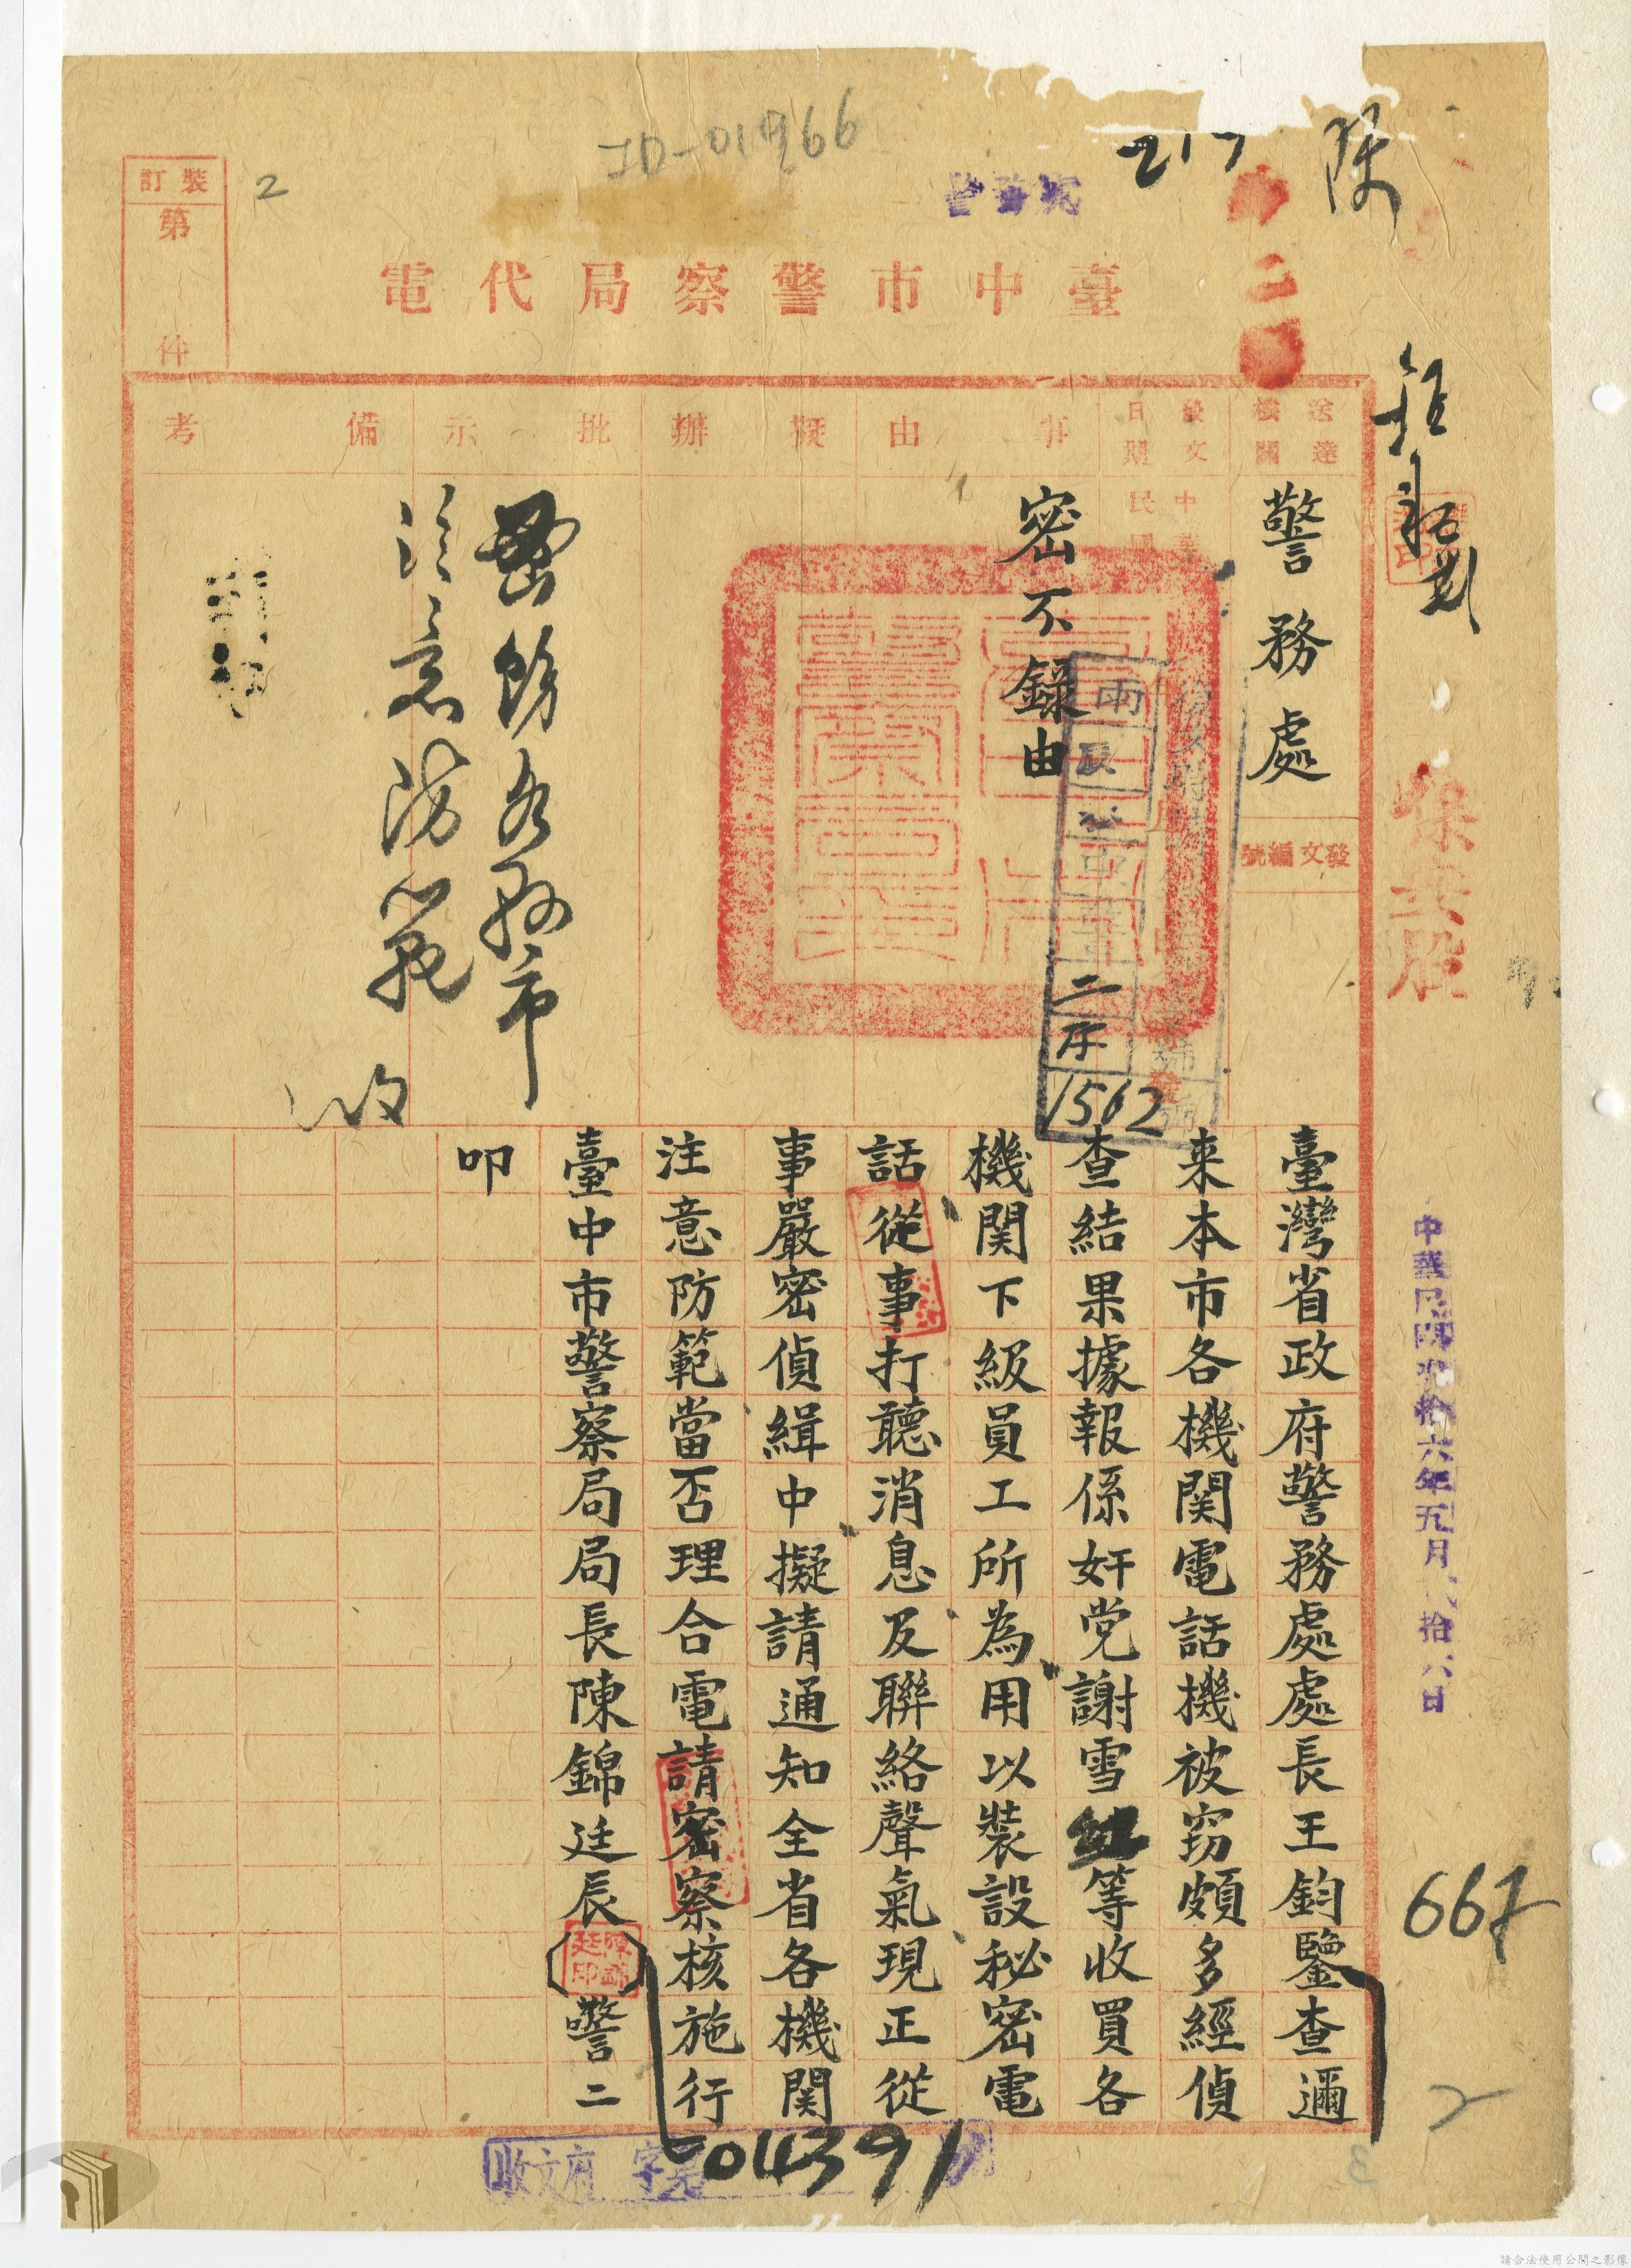 JD-01966
217
陳
警務處
臺中市警察局代電
裝訂
第
件
2
送達機關
警務處
發文編號
發文日期
中華民國
兩辰
中警二序
1562
事由
密不錄由
擬辦
批示
密飭各縣市
注意防範
備考
保安股
中華民國卅拾六年五月
拾六日
臺灣省政府警務處處長王鈞鑒查邇
来本市各機関電話機被窃頗多經偵
查結果據報係奸党謝雪紅等收買各
機関下級員工所為用以裝設秘密電
話從事打聽消息及聯絡聲氣現正從
事嚴密偵緝中擬請通知全省各機関
注意防範當否理合電請密察核施行
臺中市警察局局長陳錦廷辰
陳錦廷印
警二
叩
667
2
收文府 字第 04391 號
請合法使用公開之影像